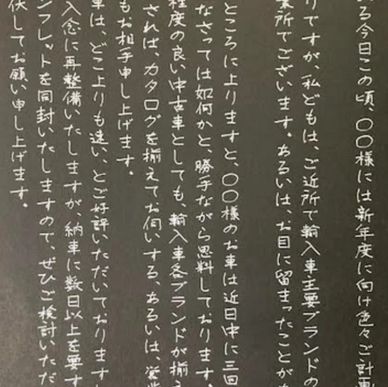 る今日この頃、〇〇様には新年度に向け色々ご計画
りですが、私どもは、ご近所で輸入車主要ブランドの
業所でございます。あるいは、お目に留まったことが
ところに上りますと、〇〇様のお車は近日中に三回
なさっては如何かと、勝手ながら思料しております。
程度の良い中古車としても、輸入車各ブランドが揃え
されば、カタログを揃えてお伺いする、あるいは、営業
もお相手申し上げます。
車は、どこよりも速い、とご好評いただいております
入念に再整備いたしますが、納車に数日以上を要す
ンフレットを同封いたしますので、ぜひご検討いただ
伏してお願い申し上げます。